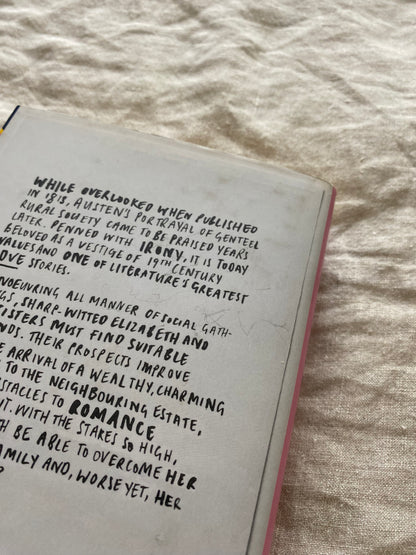 WHILE OVERLOOKED WHEN PUBLISHED
IN 1813, AUSTEN'S PORTRAYAL OF GENTEEL
RURAL SOCIETY CAME TO BE PRAISED YEARS
LATER. PENNED WITH IRONY, IT IS TODAY
BELOVED AS A VESTIGE OF 19TH CENTURY
VALUES AND ONE OF LITERATURE'S GREATEST
LOVE STORIES.
NOEUVRING ALL MANNER OF SOCIAL GATH-
GS, SHARP-WITTED ELIZABETH AND
SISTERS MUST FIND SUITABLE
NDS. THEIR PROSPECTS IMPROVE
E ARRIVAL OF A WEALTHY, CHARMING
TO THE NEIGHBOURING ESTATE,
STACLES TO ROMANCE
T. WITH THE STAKES SO HIGH,
H BE ABLE TO OVERCOME HER
AMILY AND, WORSE YET, HER
?